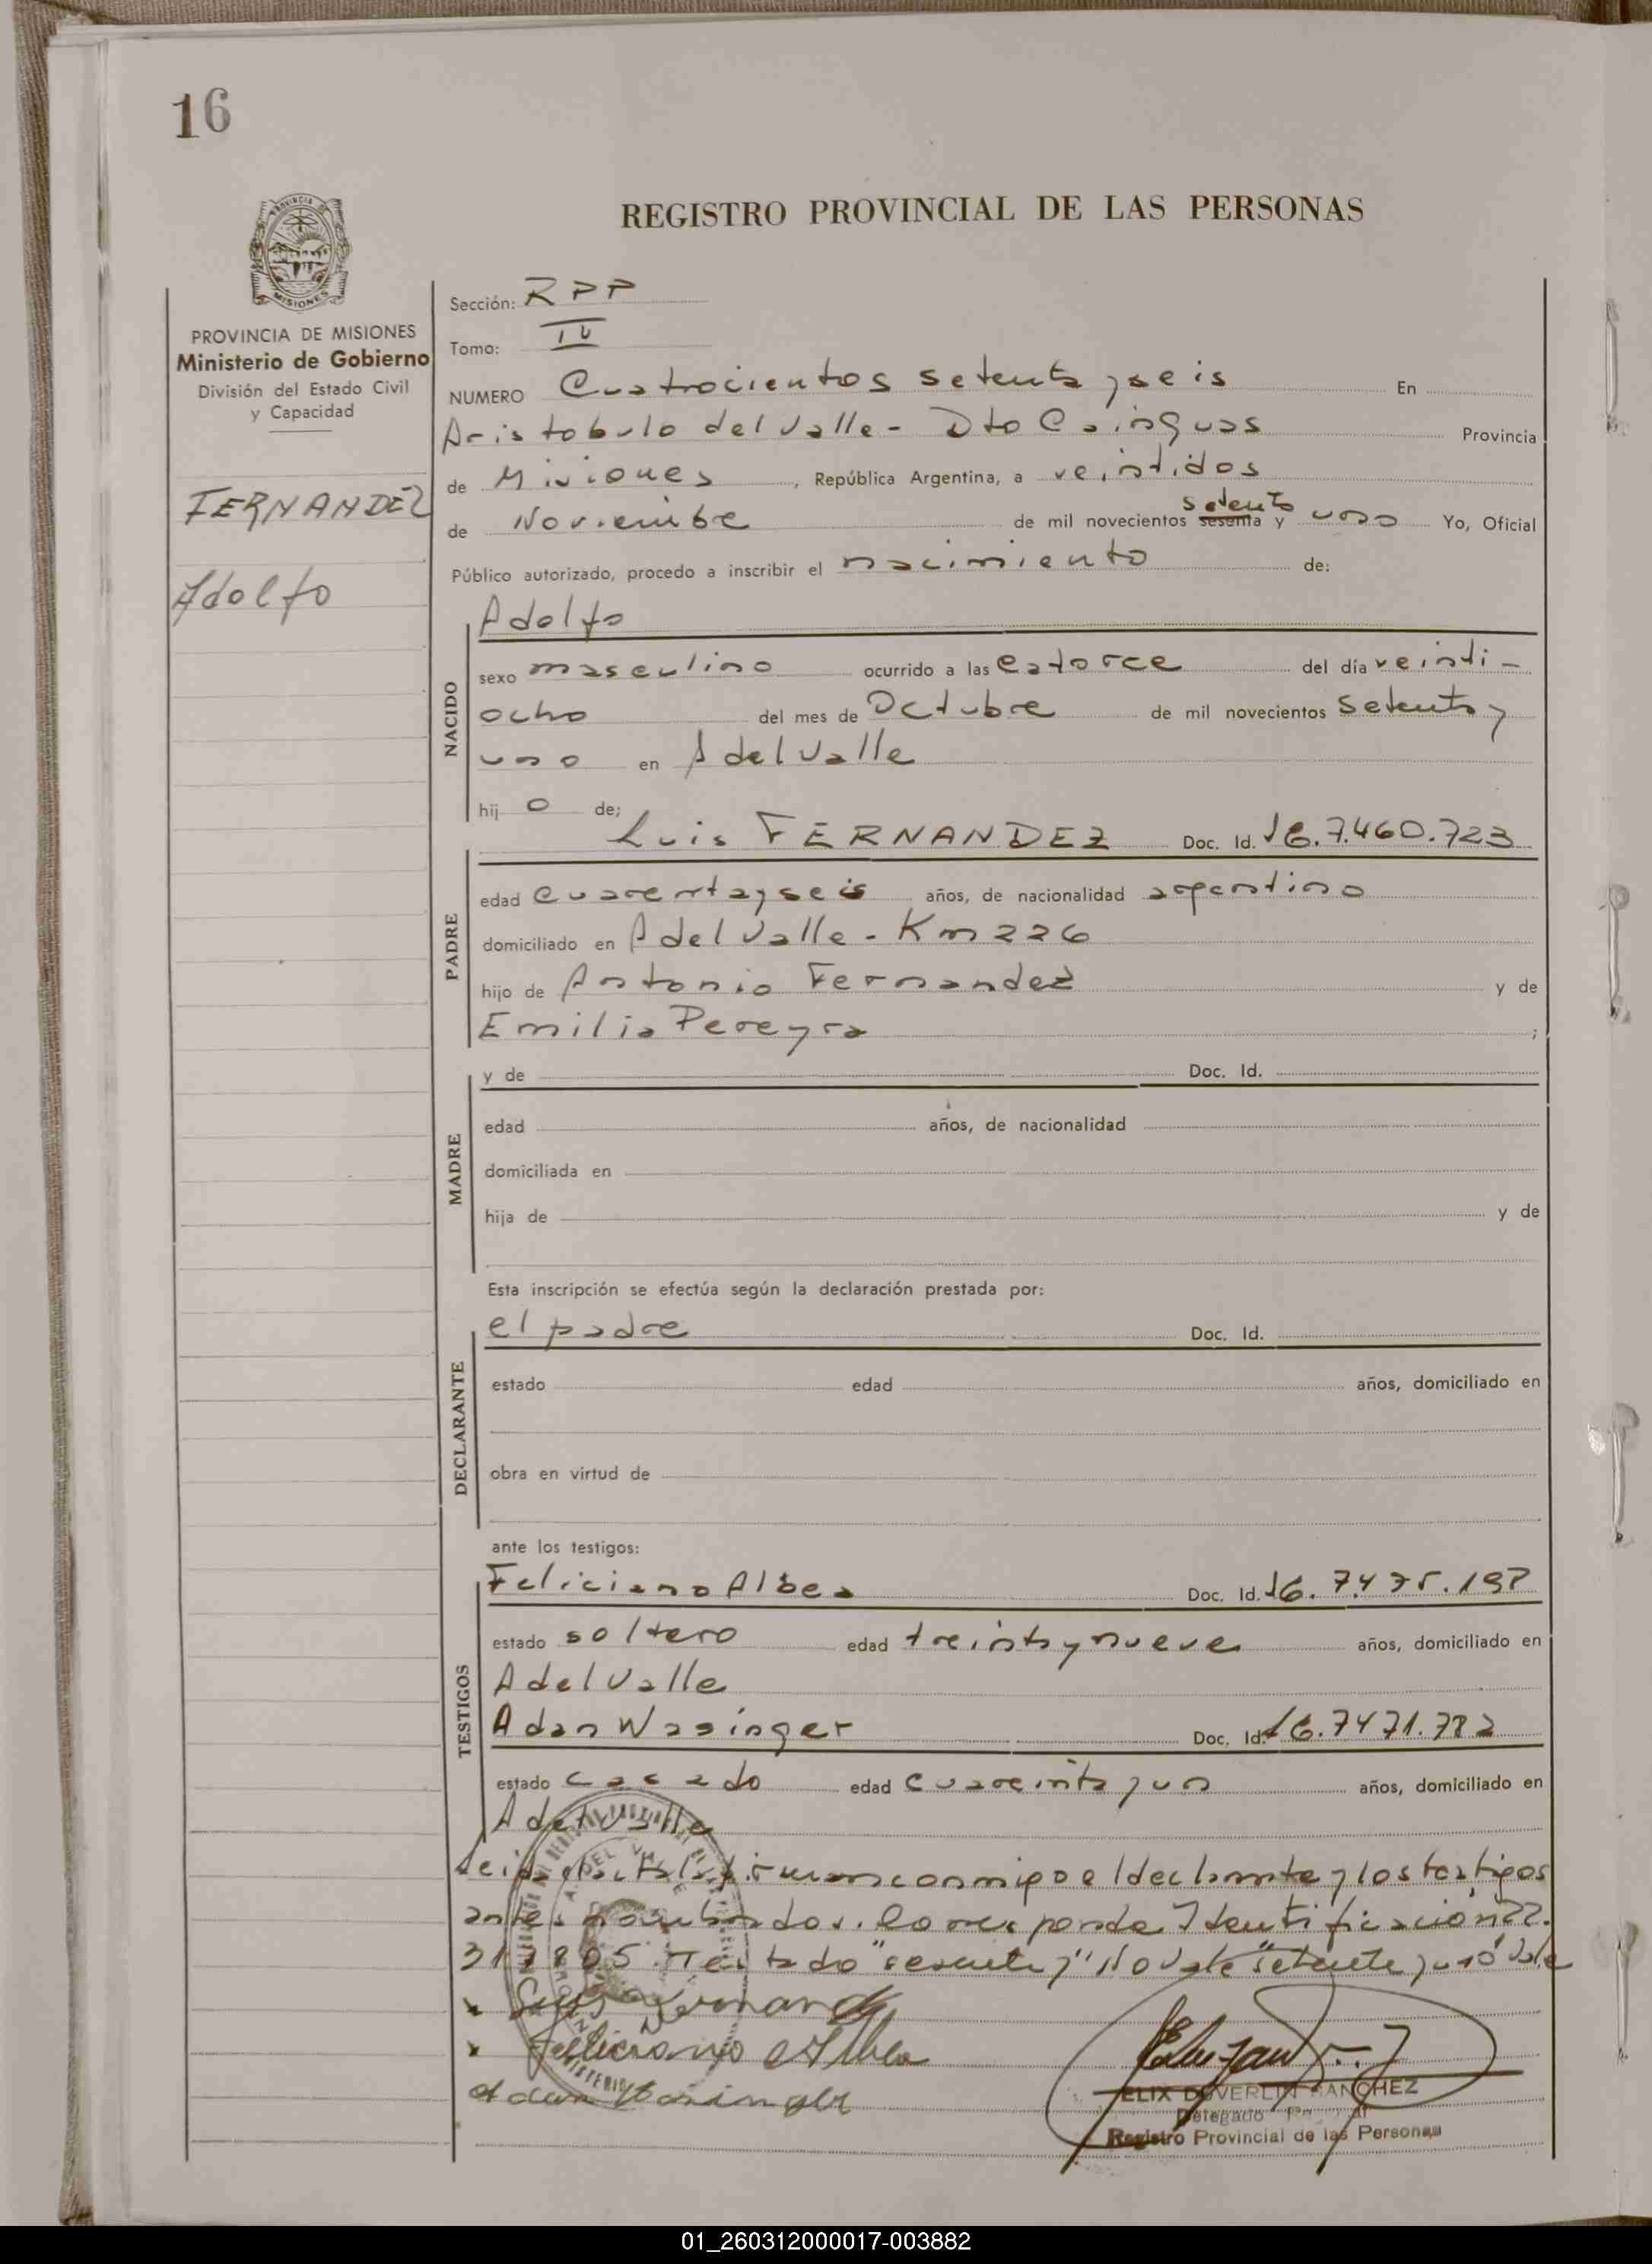 16
REGISTRO PROVINCIAL DE LAS PERSONAS
PROVINCIA DE MISIONES
Ministerio de Gobierno
División del Estado Civil
y Capacidad
FERNANDEZ
Adolfo
Sección: RPP
Tomo: IV
NUMERO Cuatrocientos setenta y seis En
Aristobulo del Valle - Dto Cainguas Provincia
de Misiones, República Argentina, a veintidos
setenta
de Noviembre de mil novecientos sesenta y uno Yo, Oficial
Público autorizado, procedo a inscribir el nacimiento de:
NACIDO
Adolfo
sexo masculino ocurrido a las catorce del día veinti-
ocho del mes de Octubre de mil novecientos setenta y
uno en A del Valle
hij o de;
PADRE
Luis FERNANDEZ Doc. Id. M. 7.460.723
edad cuarenta y seis años, de nacionalidad argentino
domiciliado en A del Valle - Km 226
hijo de Antonio Fernandez y de
Emilia Pereyra ;
MADRE
y de Doc. Id.
edad años, de nacionalidad
domiciliada en
hija de y de
Esta inscripción se efectúa según la declaración prestada por:
DECLARANTE
el padre Doc. Id.
estado edad años, domiciliado en
obra en virtud de
ante los testigos:
TESTIGOS
Feliciano Albea Doc. Id.
estado soltero edad treinta y nueve años, domiciliado en
A del Valle
Adan Wasinger Doc. Id. 7471.782
estado casado edad cuareinta y un años, domiciliado en
A del Valle
Leida el acta la firman conmigo el declarante y los testigos
antes nombrados. Corresponde Identificación 22.
311805. Testado "sesenta y" No vale "setenta y uno" Vale
Luis Fernand
Feliciano Albea
Adan Wasinger
FELIX DUVERLIN SANCHEZ
Delegado
Registro Provincial de las Personas
01_260312000017-003882